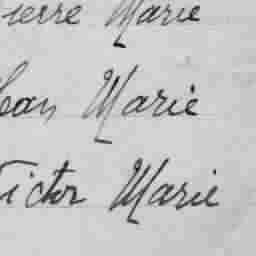 Pierre Marie
Jean Marie
Victor Marie